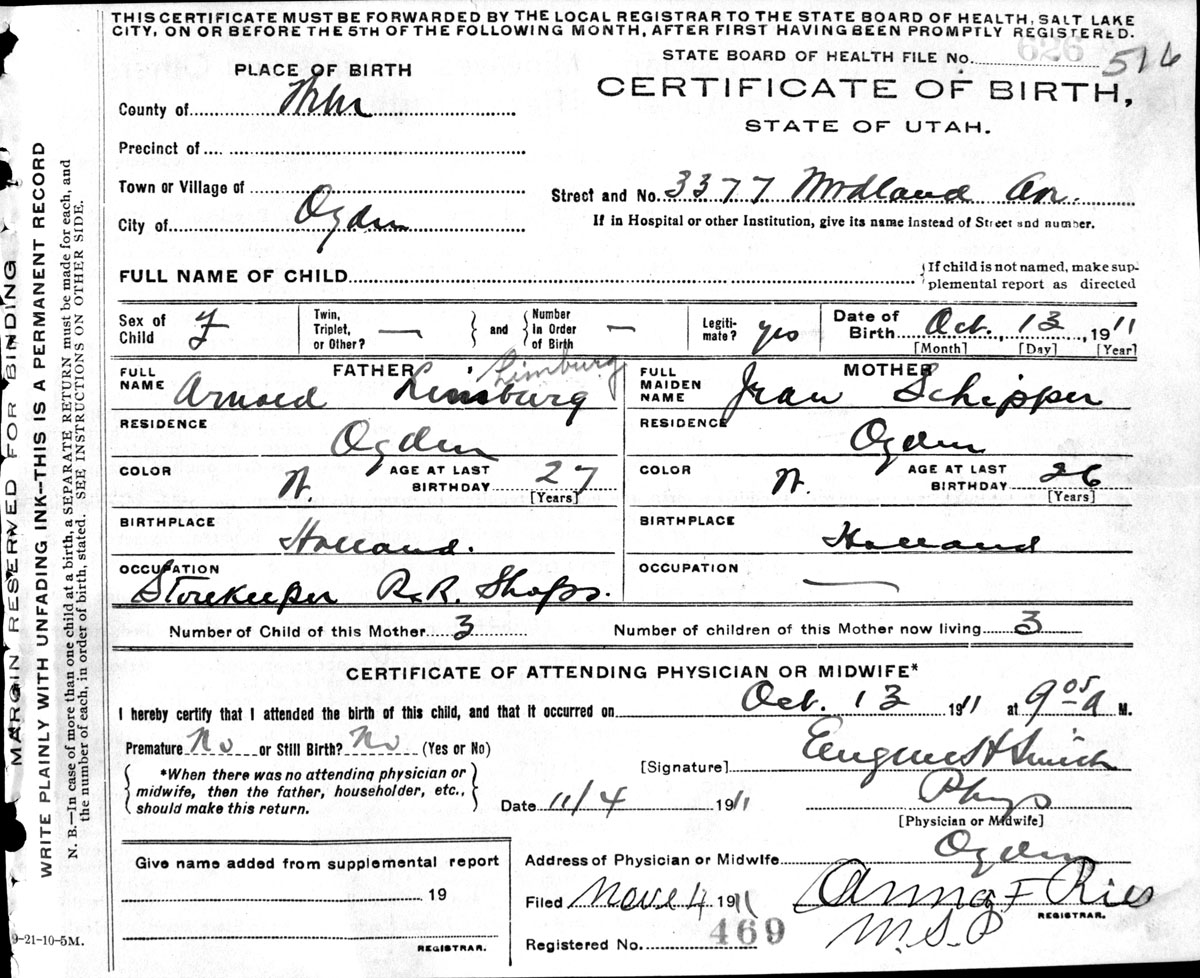 THIS CERTIFICATE MUST BE FORWARDED BY THE LOCAL REGISTRAR TO THE STATE BOARD OF HEALTH, SALT LAKE
CITY, ON OR BEFORE THE 5TH OF THE FOLLOWING MONTH, AFTER FIRST HAVING BEEN PROMPTLY REGISTERED.
STATE BOARD OF HEALTH FILE No. 626 516
PLACE OF BIRTH
CERTIFICATE OF BIRTH,
STATE OF UTAH.
County of
Precinct of
Town or Village of
Street and No. 3377 Midland Av.
City of Ogden
If in Hospital or other Institution, give its name instead of Street and number.
FULL NAME OF CHILD
{If child is not named, make sup-
plemental report as directed
Sex of Child F
Twin, Triplet, or Other? —
} and {
Number In Order of Birth —
Legiti- mate? yes
Date of Birth Oct. 13, 1911
[Month] [Day] [Year]
FATHER
FULL NAME Arnold Limburg Limburg
MOTHER
FULL MAIDEN NAME Jean Schipper
RESIDENCE Ogden
RESIDENCE Ogden
COLOR W. AGE AT LAST BIRTHDAY 27 [Years]
COLOR W. AGE AT LAST BIRTHDAY 26 [Years]
BIRTHPLACE Holland.
BIRTHPLACE Holland
OCCUPATION Storekeeper R.R. Shops.
OCCUPATION —
Number of Child of this Mother 3
Number of children of this Mother now living 3
CERTIFICATE OF ATTENDING PHYSICIAN OR MIDWIFE*
I hereby certify that I attended the birth of this child, and that it occurred on Oct. 13 1911 at 9 05 a M.
Premature No or Still Birth? No (Yes or No)
[Signature] Eugene H Smith
{ *When there was no attending physician or
midwife, then the father, householder, etc.,
should make this return. }
Date 11/4 1911
Phys
[Physician or Midwife]
Give name added from supplemental report
19
REGISTRAR.
Address of Physician or Midwife Ogden
Filed Nov. 4 1911 Anna F Ries
REGISTRAR.
M.S.P
Registered No. 469
9-21-10-5M.
MARGIN RESERVED FOR BINDING
WRITE PLAINLY WITH UNFADING INK—THIS IS A PERMANENT RECORD
N. B.—In case of more than one child at a birth, a SEPARATE RETURN must be made for each, and
the number of each, in order of birth, stated. SEE INSTRUCTIONS ON OTHER SIDE.